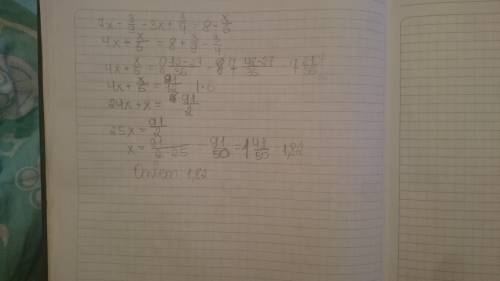 7x - 3/9 - 3x + 3/4 = 8 - x/6
4x + x/6 = 8 + 3/9 - 3/4
4x + x/6 =
4x + x/6 = 91/12 | · 6
24x + x = 91/2
25x = 91/2
x = 91/2·25 = 91/50 = 1 41/50 1,82
Ответ: 1,82